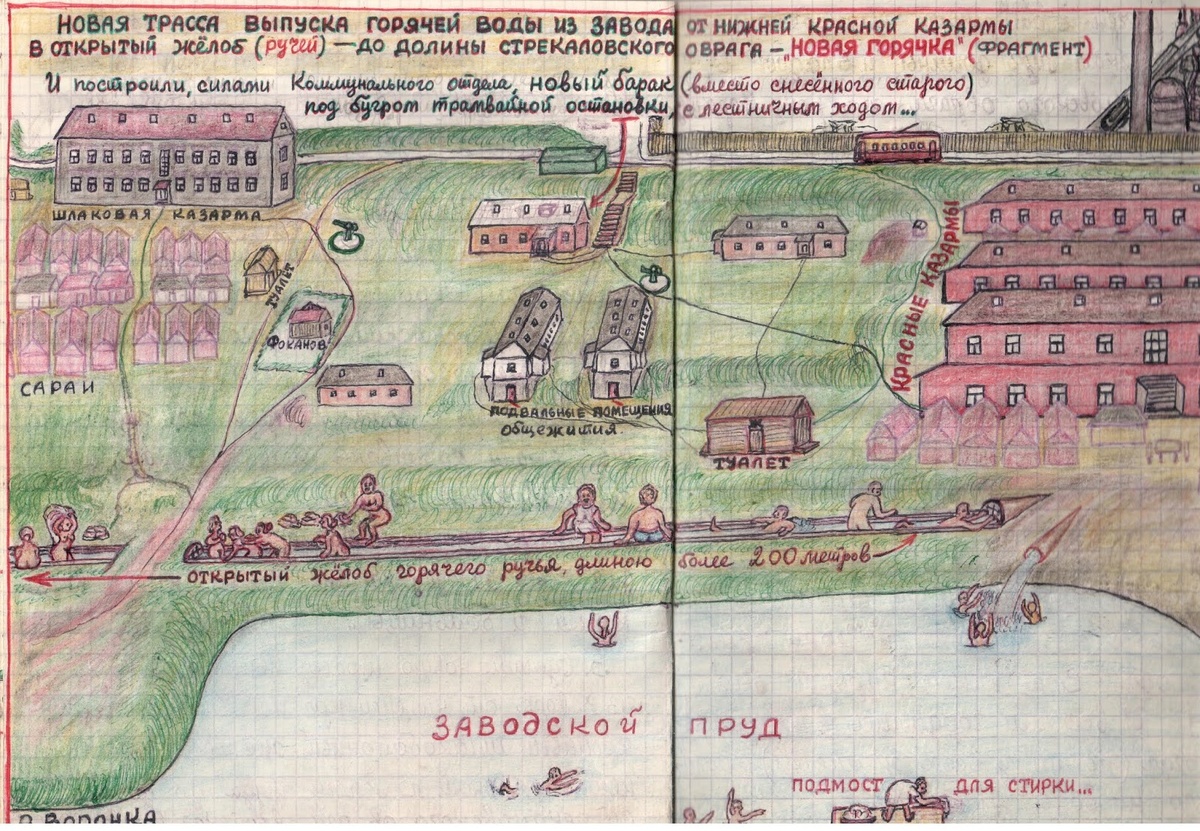 НОВАЯ ТРАССА ВЫПУСКА ГОРЯЧЕЙ ВОДЫ ИЗ ЗАВОДА ОТ НИЖНЕЙ КРАСНОЙ КАЗАРМЫ
В ОТКРЫТЫЙ ЖЁЛОБ (РУЧЕЙ) — ДО ДОЛИНЫ СТРЕКАЛОВСКОГО ОВРАГА – „НОВАЯ ГОРЯЧКА" (ФРАГМЕНТ)
И построили, силами Коммунального отдела, новый барак (вместо снесённого старого)
под бугром трамвайной остановки, с лестничным ходом...
ШЛАКОВАЯ КАЗАРМА
ТУАЛЕТ
ФОКАНОВ
САРАИ
КРАСНЫЕ КАЗАРМЫ
ПОДВАЛЬНЫЕ ПОМЕЩЕНИЯ
ОБЩЕЖИТИЯ.
ТУАЛЕТ
ОТКРЫТЫЙ ЖЁЛОБ ГОРЯЧЕГО РУЧЬЯ, ДЛИНОЮ БОЛЕЕ 200 МЕТРОВ
ЗАВОДСКОЙ ПРУД
ПОДМОСТ ДЛЯ СТИРКИ...
Р. ВОРОНКА